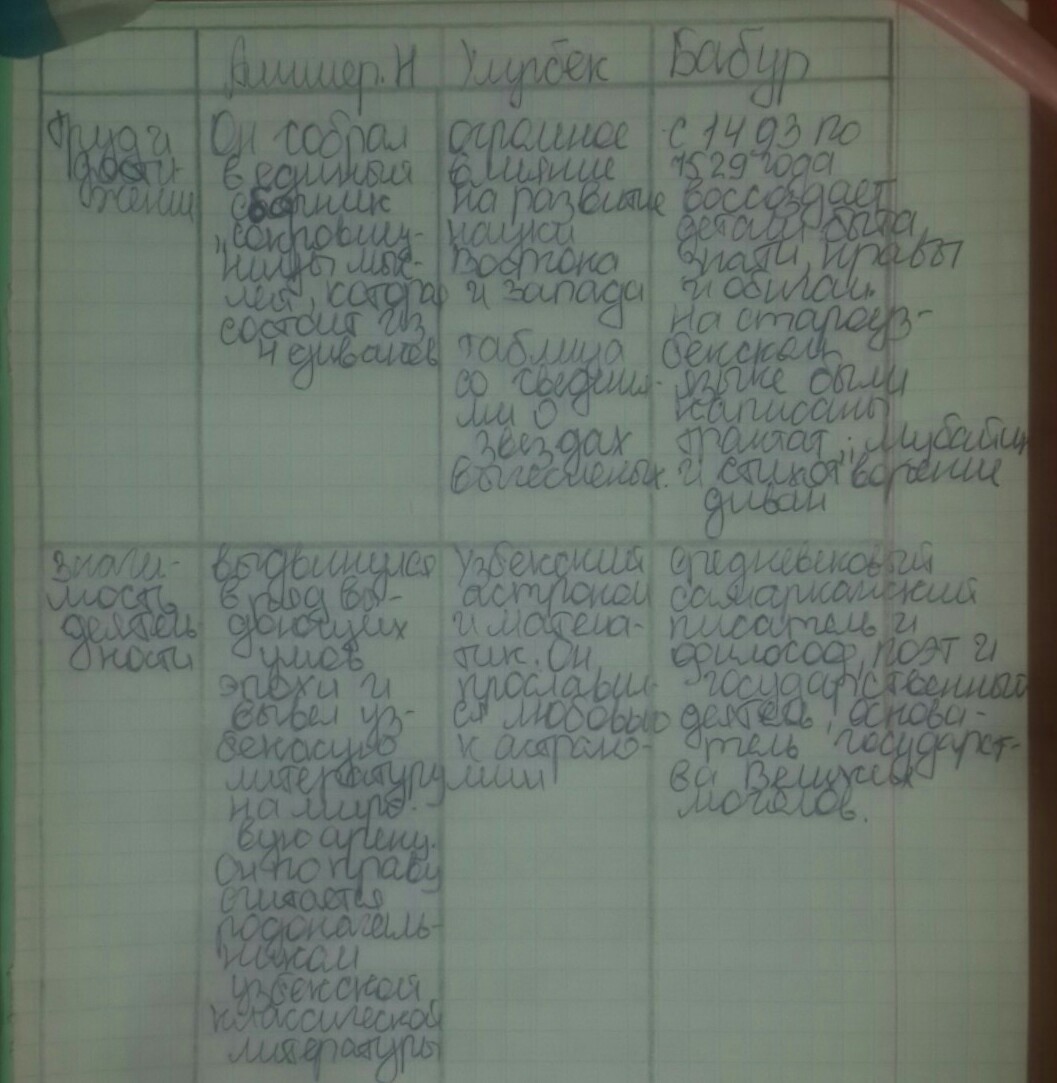 Алишер.Н Улугбек Бабур
Труд и
дости-
жении
Он собрал
в единый
сборник
"сокровищ-
ницы мыс-
лей", которая
состоит из
4 диванов
огромное
влияние
на развитие
науки
Востока
и запада
таблица
со сведения-
ми о
звездах
с 1493 по
1529 года
воссоздает
детали быта,
знати, нравы
и обычаи.
на староуз-
бекском
языке были
написаны
трактат "Мубайин"
и стихотворение
диван
значи-
мость
деятель
ности
выдвинулся
в ряд вы-
дающих
умов
эпохи и
вывел уз-
бекскую
литературу
на миро-
вую арену.
Он по праву
считается
родоначаль-
ником
узбекской
классической
литературы
узбекский
астроном
и матема-
тик. Он
прославил-
ся любовью
к астроно-
мии
средневековый
самаркандский
писатель и
философ, поэт и
государственный
деятель, основа-
тель государст-
ва Великих
моголов.